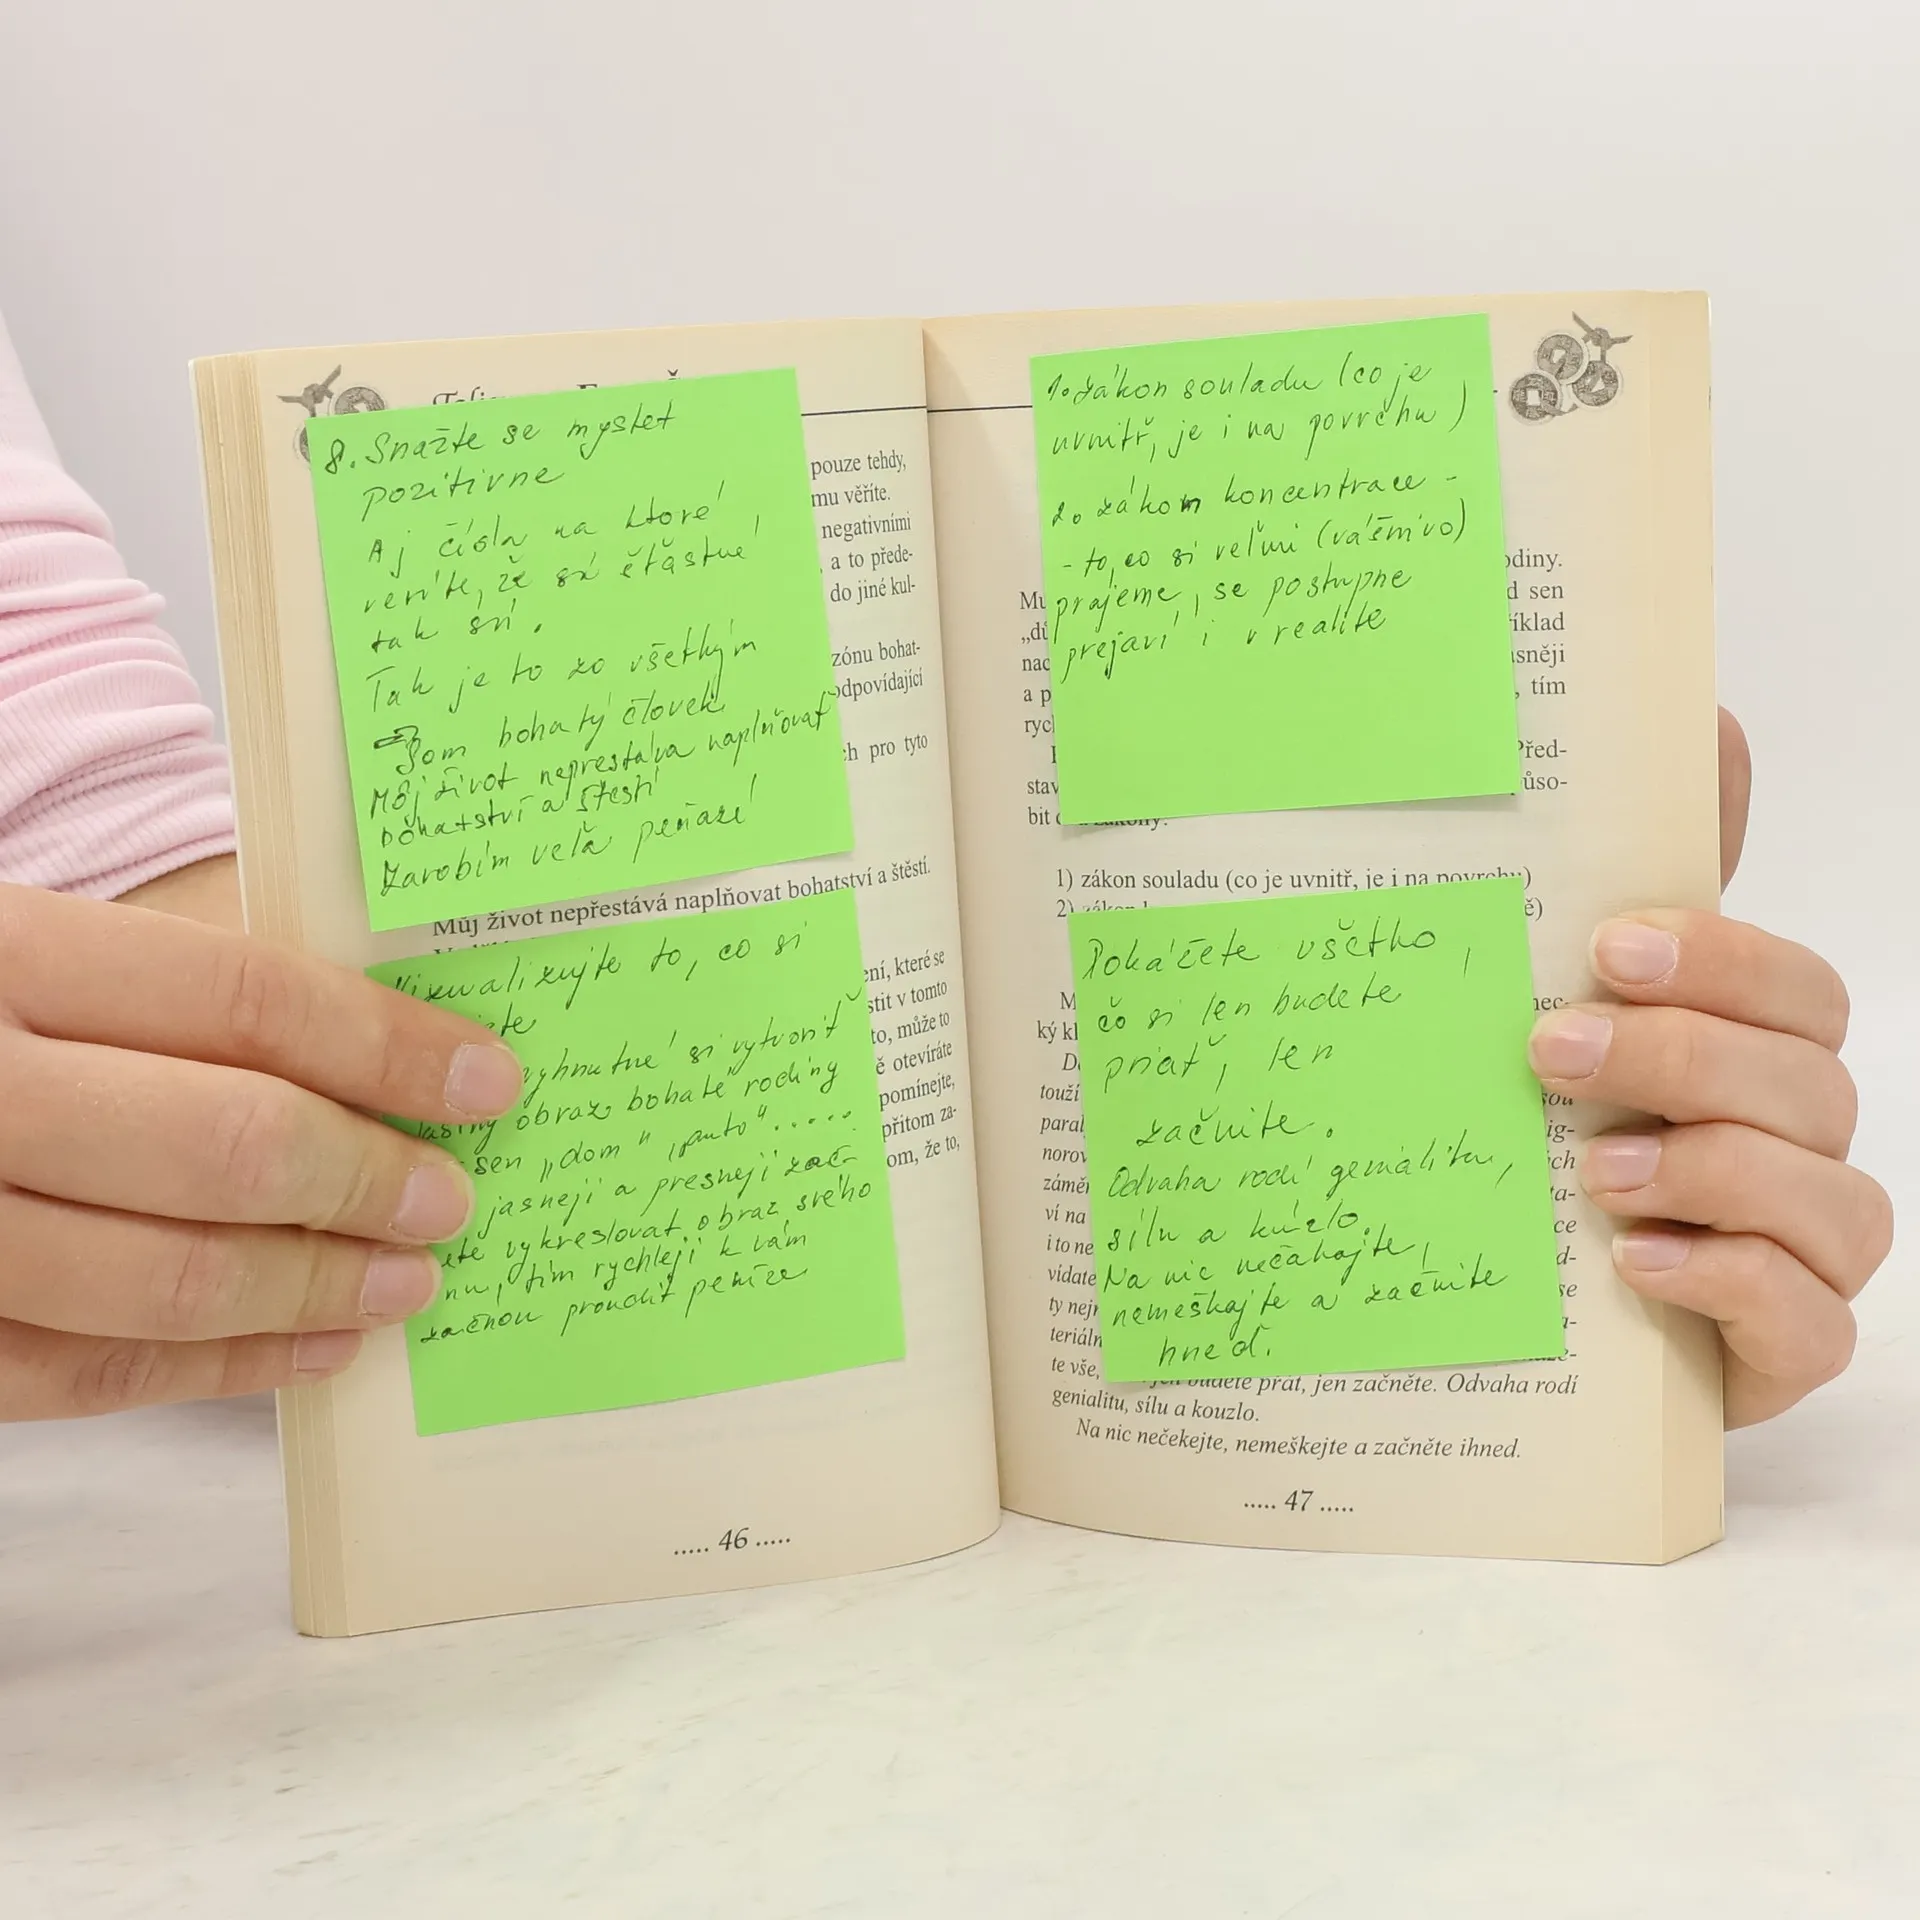 8. Snažte se myslet
pozitivne
Aj čísla na ktoré
veríte, že sú šťastné,
tak sú.
Tak je to zo všetkým
Som bohatý človek
Môj život neprestáva naplňovať
bohatství a štestí
Zarobím veľa peňazí
pouze tehdy,
mu věříte.
negativními
, a to přede-
do jiné kul-
zónu bohat-
odpovídající
ch pro tyto
Můj život nepřestává naplňovat bohatství a štěstí.
Vizualizujte to, co si
vyhnutné si vytvoriť
obraz bohaté rodiny
sen "dom" "auto".....
jasneji a presneji zač-
ete vykreslovat obraz svého
nu, tím rychleji k vám
začnou proudit peníze
ení, které se
stit v tomto
to, může to
ě otevíráte
pomínejte,
přitom za-
om, že to,
..... 46 .....
1. zákon souladu (co je
uvnitř, je i na povrchu)
2. zákon koncentrace -
- to, co si veľmi (vášnivo)
prajeme, se postupne
prejaví i v realite
odiny.
d sen
íklad
asněji
, tím
Před-
ůso-
1) zákon souladu (co je uvnitř, je i na povrchu)
2)
Pokážete všetko,
čo si len budete
priať, len
začnite.
Odvaha rodí genialitu,
sílu a kúzlo.
Na nic nečakajte,
nemeškajte a začnite
hneď.
ký kl
touží
paral
norov
záměr
ví na
i to ne
vídate
ty nejr
teriáln
te vše, jen budete přát, jen začněte. Odvaha rodí
genialitu, sílu a kouzlo.
Na nic nečekejte, nemeškejte a začněte ihned.
..... 47 .....